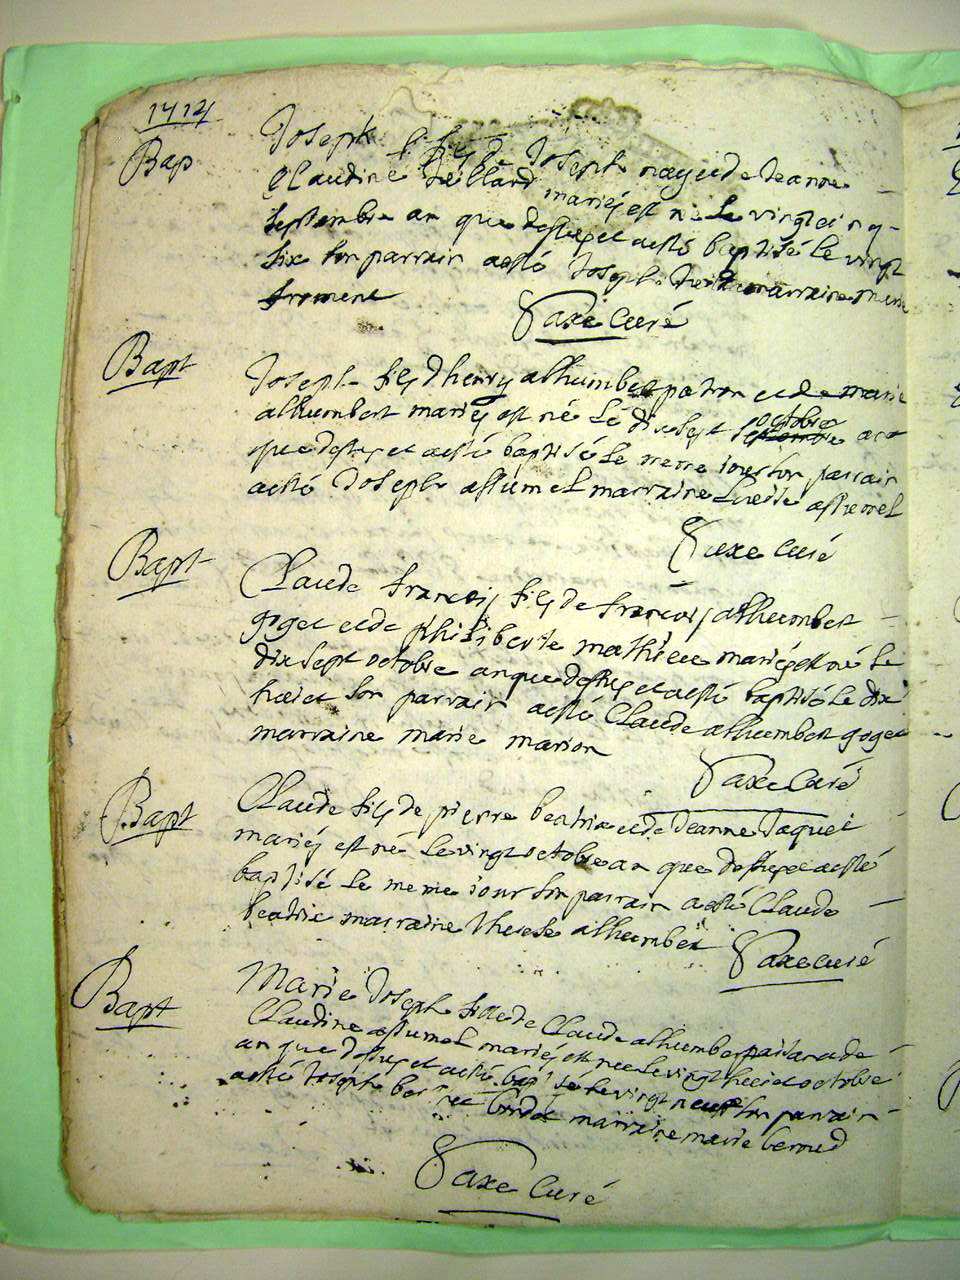 1714
Bap
Joseph fils de Joseph nay et de Jeanne
Claudine Veillard mariés est né Le vingt cinq
septembre an que dessus et a esté baptisé Le vingt
six son parrain a esté Joseph marraine marie
froment
Saxe Curé
Bapt
Joseph fils d henry alhumbert patron et de marie
alhumbert mariés est né Le dix sept octobre an
que dessus et a esté baptisé Le meme iour son parrain
a esté Joseph assumel marraine Lucresse assumel
Saxe Curé
Bapt
Claude francois fils de francois alhumbert
goget et de philiberte mathieu mariés est né Le
dix sept octobre an que dessus et a esté baptisé Le dix
huict son parrain a esté Claude alhumbert goget
marraine marie marion
Saxe Curé
Bapt
Claude fils de pierre beatrix et de Jeanne Jaquet
mariés est né Le vingt octobre an que dessus et a esté
baptisé Le meme iour son parrain a esté Claude
beatrix marraine Therese alhumbert
Saxe Curé
Bapt
Marie Joseph fille de Claude alhumbert et de
Claudine assumel mariés est née Le vingt huict octobre
an que dessus et a esté bapt sée Le vingt neuf son parrain
a esté Joseph marraine marie beroud
Saxe Curé